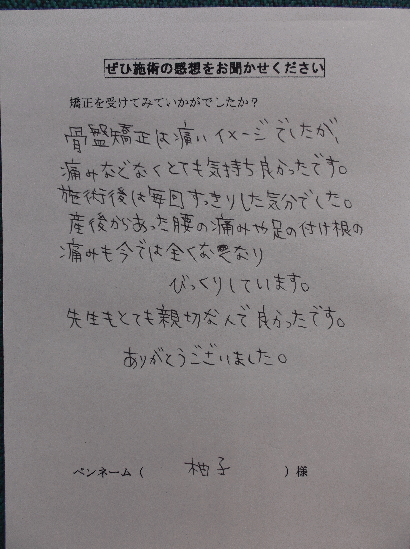 ぜひ施術の感想をお聞かせください
矯正を受けてみていかがでしたか？
骨盤矯正は痛いイメージでしたが、
痛みなどなくとても気持ち良かったです。
施術後は毎回すっきりした気分でした。
産後からあった腰の痛みや足の付け根の
痛みも今では全くなくなり
びっくりしています。
先生もとても親切なんで良かったです。
ありがとうございました。
ペンネーム（ 柚子 ）様